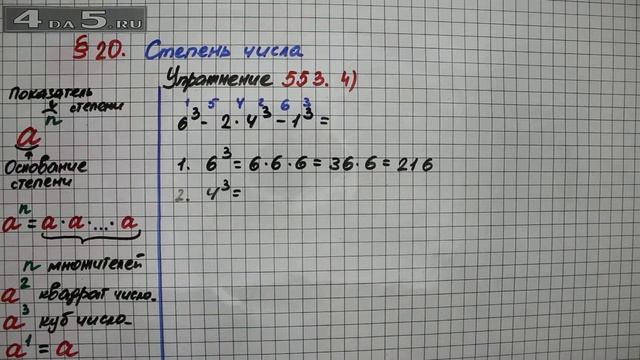 4DA5.RU
§ 20. Степень числа
Упражнение 553. 4)
Показатель
степени
n
a
Основание
степени
aⁿ = a · a · ... · a
n множителей
a² квадрат числа
a³ куб числа
a¹ = a
1 5 4 2 6 3
6³ - 2 · 4³ - 1³ =
1. 6³ = 6 · 6 · 6 = 36 · 6 = 216
2. 4³ =